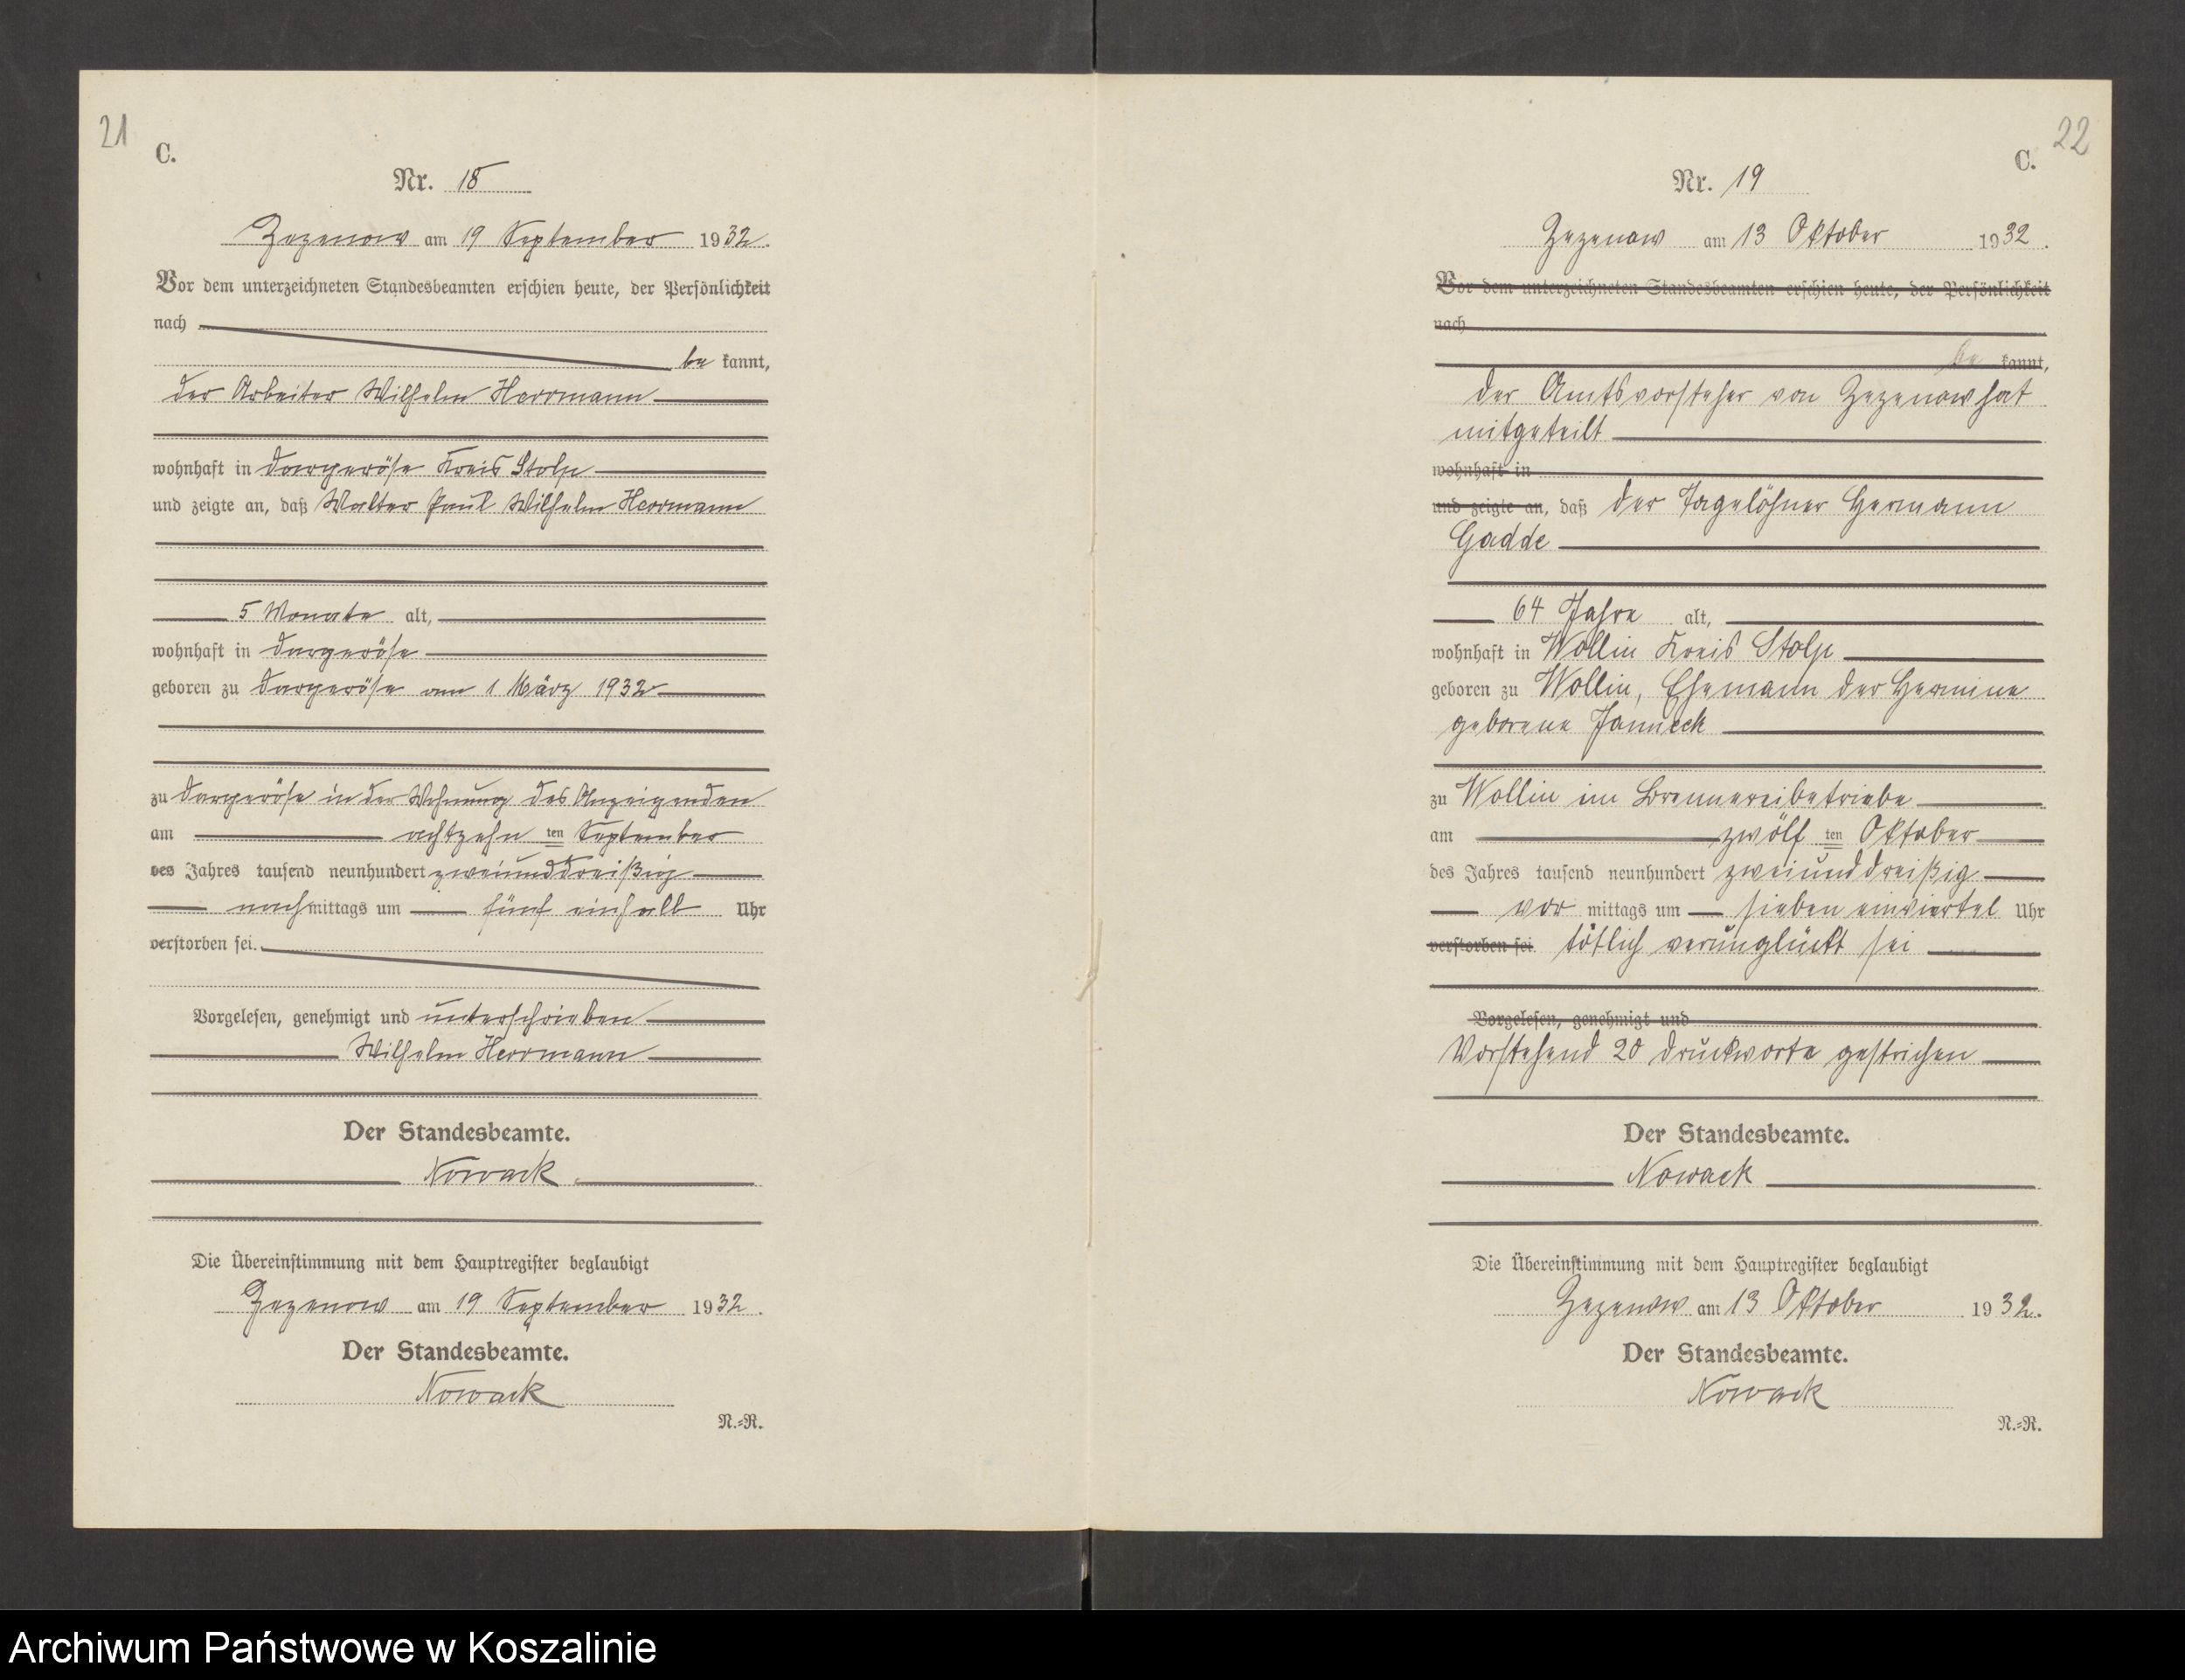 21
C.
Nr. 18
Zezenow am 19 September 1932.
Vor dem unterzeichneten Standesbeamten erschien heute, der Persönlichkeit
nach
be kannt,
der Arbeiter Wilhelm Herrmann
wohnhaft in Dargeröse Kreis Stolp
und zeigte an, daß Walter Paul Wilhelm Herrmann
5 Monate alt,
wohnhaft in Dargeröse
geboren zu Dargeröse am 1 März 1932
zu Dargeröse in der Wohnung des Anzeigenden
am achtzehn ten September
des Jahres tausend neunhundert zweiunddreißig
nachmittags um fünf einhalb Uhr
verstorben sei.
Vorgelesen, genehmigt und unterschrieben
Wilhelm Herrmann
Der Standesbeamte.
Nowack
Die Übereinstimmung mit dem Hauptregister beglaubigt
Zezenow am 19 September 1932.
Der Standesbeamte.
Nowack
N.=R.
22
C.
Nr. 19
Zezenow am 13 Oktober 1932.
Vor dem unterzeichneten Standesbeamten erschien heute, der Persönlichkeit
nach
be kannt,
der Amtsvorsteher von Zezenow hat
mitgeteilt
wohnhaft in
und zeigte an, daß der Tagelöhner Hermann
Gadde
64 Jahre alt,
wohnhaft in Wollin Kreis Stolp
geboren zu Wollin, Ehemann der Hermine
geborene Janneck
zu Wollin im Brennereibetriebe
am zwölf ten Oktober
des Jahres tausend neunhundert zweiunddreißig
vor mittags um sieben einviertel Uhr
verstorben sei. tötlich verunglückt sei
Vorgelesen, genehmigt und
Vorstehend 20 Druckworte gestrichen
Der Standesbeamte.
Nowack
Die Übereinstimmung mit dem Hauptregister beglaubigt
Zezenow am 13 Oktober 1932.
Der Standesbeamte.
Nowack
N.=R.
Archiwum Państwowe w Koszalinie